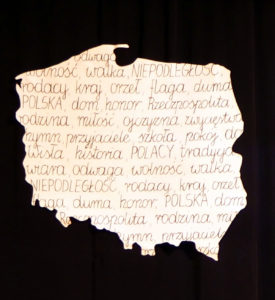 odwaga
wolność, walka, NIEPODLEGŁOŚĆ,
rodacy kraj orzeł, flaga duma
POLSKA, dom honor, Rzeczpospolita
rodzina miłość, ojczyzna zwycięstwo
hymn, przyjaciele szkoła pokój, do
Wisła, historia, POLACY, tradycja
wiara odwaga wolność, walka,
NIEPODLEGŁOŚĆ rodacy, kraj orzeł
flaga duma honor, POLSKA dom
Rzeczpospolita, rodzina mi
hymn przyjaciele